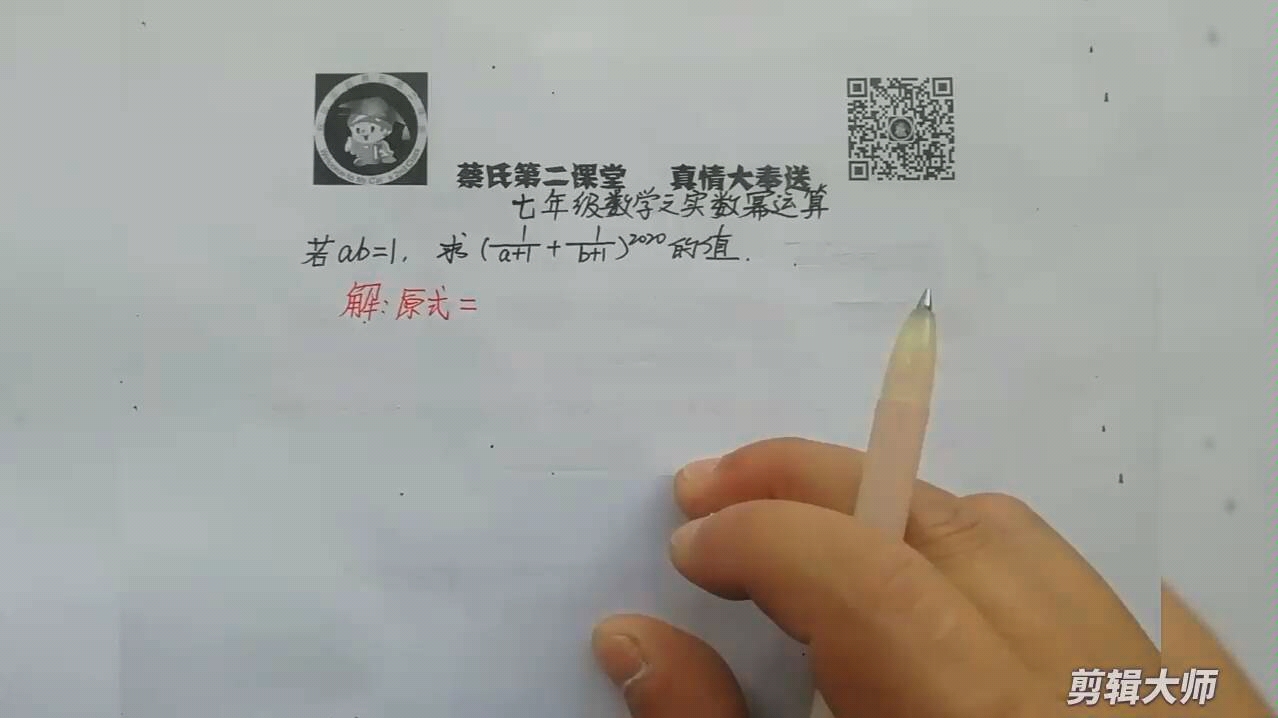 蔡氏第二课堂 真情大奉送
七年级数学之实数幂运算
若ab=1, 求(1/(a+1) + 1/(b+1))^2020 的值.
解:原式=
剪辑大师